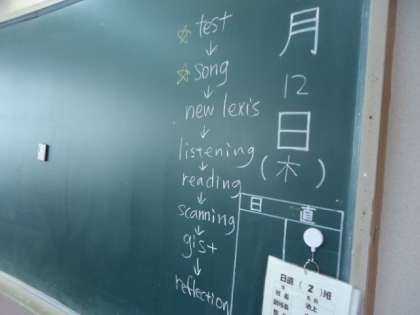 ☆ test
↓
☆ song
↓
new lexis
↓
listening
↓
reading
↓
scanning
↓
gist
↓
reflection
月
12
日
(木)
日 直
日直 (2) 班